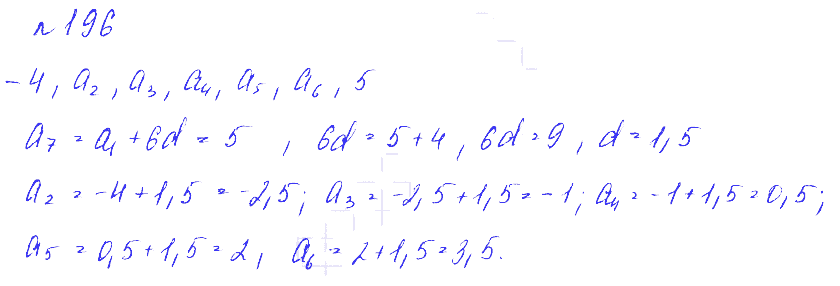 n 196
-4, a₂, a₃, a₄, a₅, a₆, 5
a₇ = a₁ + 6d = 5 , 6d = 5 + 4, 6d = 9, d = 1,5
a₂ = -4 + 1,5 = -2,5; a₃ = -2,5 + 1,5 = -1; a₄ = -1 + 1,5 = 0,5;
a₅ = 0,5 + 1,5 = 2, a₆ = 2 + 1,5 = 3,5.